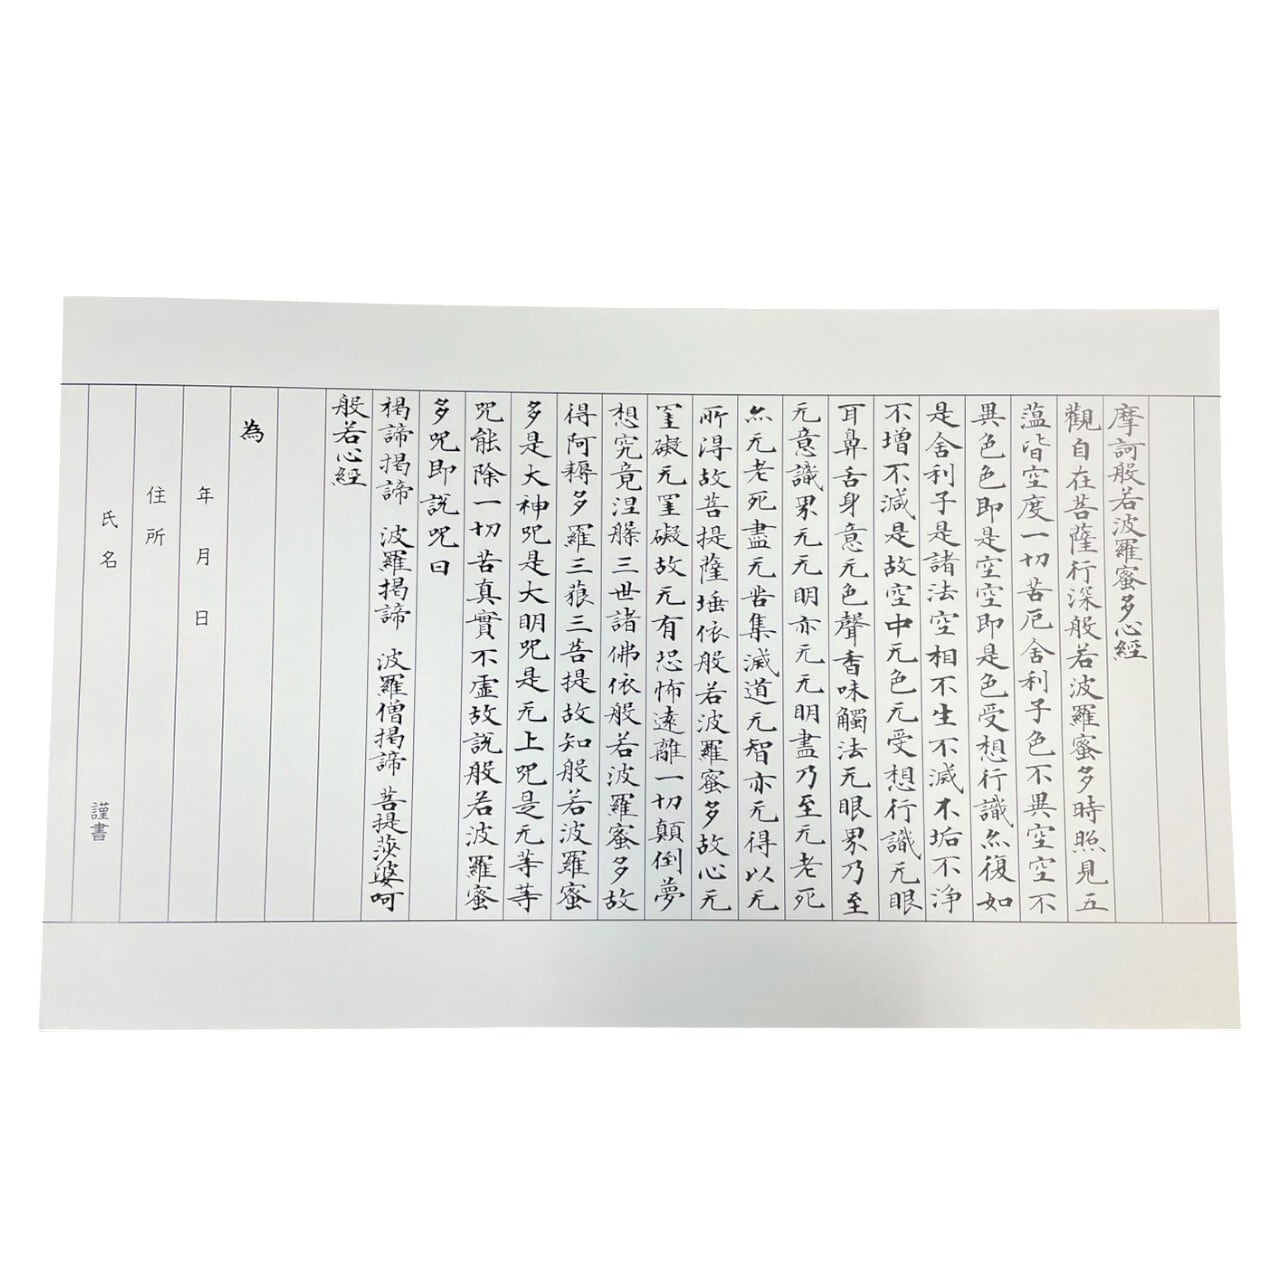 摩訶般若波羅蜜多心經
觀自在菩薩行深般若波羅蜜多時照見五
蕰皆空度一切苦厄舍利子色不異空空不
異色色即是空空即是色受想行識亦復如
是舍利子是諸法空相不生不滅不垢不浄
不増不減是故空中无色无受想行識无眼
耳鼻舌身意无色聲香味觸法无眼界乃至
无意識界无无明亦无无明盡乃至无老死
亦无老死盡无苦集滅道无智亦无得以无
所得故菩提薩埵依般若波羅蜜多故心无
罣礙无罣礙故无有恐怖遠離一切顛倒夢
想究竟涅槃三世諸佛依般若波羅蜜多故
得阿耨多羅三藐三菩提故知般若波羅蜜
多是大神咒是大明咒是无上咒是无等等
咒能除一切苦真實不虚故説般若波羅蜜
多咒即説咒曰
掲諦掲諦 波羅掲諦 波羅僧掲諦 菩提莎婆呵
般若心經
為
年 月 日
住所
氏名 謹書